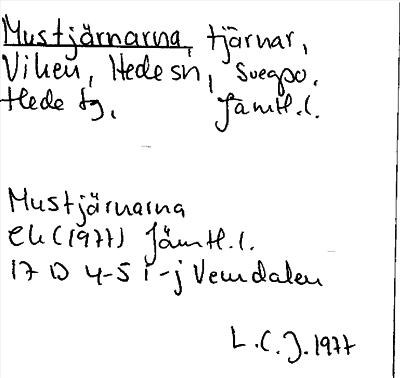 Mustjärnarna, tjärnar,
Viken, Hede sn, Svegpo.
Hede tg, Jämtl.l.
Mustjärnarna
Ek (1977) Jämtl.l.
17 D 4-5 i-j Vemdalen
L.C.J. 1977